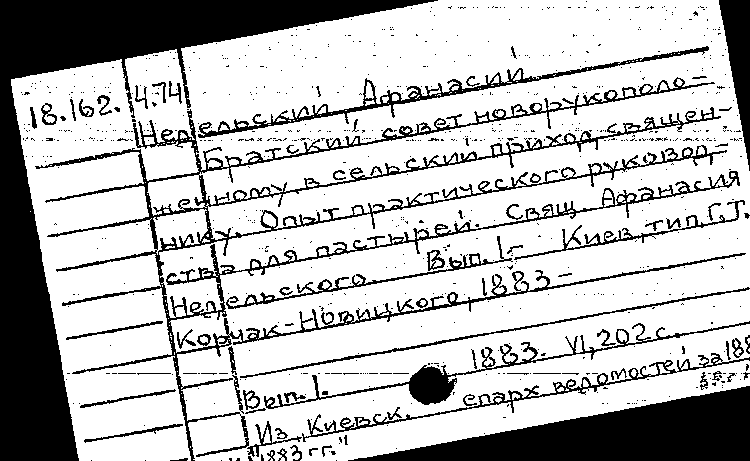 18.162. 4.74
Недельский, Афанасий
Братский совет новорукополо-
женному, в сельский приход, священ-
нику. Опыт практического руковод-
ства для пастырей. Свящ. Афанасия
Недельского. Вып. 1- Киев, тип. Г.Т.
Корчак-Новицкого, 1883 -
Вып. 1. 1883. VI, 202 с.
Из „Киевск. епарх ведомостей за 188
1883 гг."